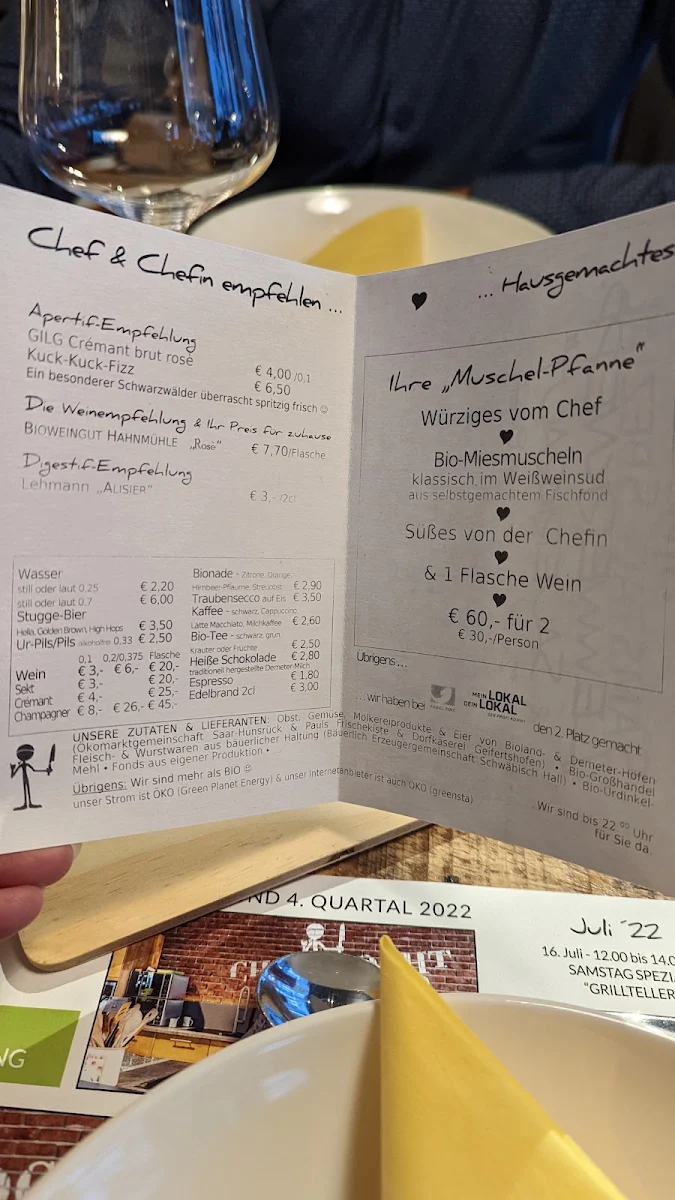 Chef & Chefin empfehlen ...
Apertif-Empfehlung
GILG Crémant brut rosé € 4,00 /0,1
Kuck-Kuck-Fizz € 6,50
Ein besonderer Schwarzwälder überrascht spritzig frisch ☺
Die Weinempfehlung & Ihr Preis für zuhause
BIOWEINGUT HAHNMÜHLE „Rosé" € 7,70/Flasche
Digestif-Empfehlung
Lehmann „ALISIER" € 3,- /2cl
Wasser
still oder laut 0,25 € 2,20
still oder laut 0,7 € 6,00
Stugge-Bier
Hella, Golden Brown, High Hops € 3,50
Ur-Pils/Pils alkoholfrei 0,33 € 2,50
0,1 0,2/0,375 Flasche
Wein € 3,- € 6,- € 20,-
Sekt € 3,- € 20,-
Crémant € 4,- € 25,-
Champagner € 8,- € 26,- € 45,-
Bionade - Zitrone, Orange,
Himbeer-Pflaume, Streuobst € 2,90
Traubensecco auf Eis € 3,50
Kaffee - schwarz, Cappuccino,
Latte Macchiato, Milchkaffee € 2,60
Bio-Tee - schwarz, grün,
Kräuter oder Früchte € 2,50
Heiße Schokolade € 2,80
traditionell hergestellte Demeter-Milch
Espresso € 1,80
Edelbrand 2cl € 3,00
... Hausgemachtes
Ihre „Muschel-Pfanne"
Würziges vom Chef
Bio-Miesmuscheln
klassisch im Weißweinsud
aus selbstgemachtem Fischfond
Süßes von der Chefin
& 1 Flasche Wein
€ 60,- für 2
€ 30,-/Person
Übrigens...
...wir haben bei MEIN LOKAL DEIN LOKAL den 2. Platz gemacht
UNSERE ZUTATEN & LIEFERANTEN: Obst, Gemüse, Molkereiprodukte & Eier von Bioland- & Demeter-Höfen
(Ökomarktgemeinschaft Saar-Hunsrück & Pauls Frischekiste & Dorfkäserei Geifertshofen) • Bio-Großhandel
Fleisch- & Wurstwaren aus bäuerlicher Haltung (Bäuerlich Erzeugergemeinschaft Schwäbisch Hall) • Bio-Urdinkel-
Mehl • Fonds aus eigener Produktion •
Übrigens: Wir sind mehr als BIO ☺
unser Strom ist ÖKO (Green Planet Energy) & unser Internetanbieter ist auch ÖKO (greensta)
Wir sind bis 22.00 Uhr
für Sie da.
ND 4. QUARTAL 2022
Juli ´22
16. Juli - 12.00 bis 14.0
SAMSTAG SPEZI
"GRILLTELLER
NG